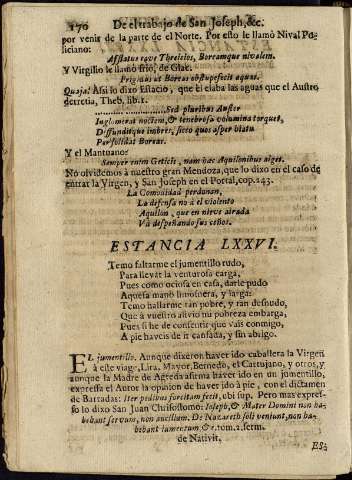 170 De el trabajo de San Joseph, &c.
por venir de la parte de el Norte. Por esto le llamò Nival Po-
liciano:
Afflatus rque Threicios, Boreamque nivalem.
Y Virgilio le llamò frio, de Glac.
Frigidus ut Boreas obstupefecit aquas.
Quaja! Assi lo dixo Estacio, que èl elaba las aguas que el Austro
derretia, Theb. lib. 1.
Sed pluribus Auster
Inglomerat noctem, & tenebrosa volumina torquet,
Diffunditque imbres, sicco quos asper hiatu
Persolidat Boreas.
Y el Mantuano:
Semper enim Geticis, nam hæc Aquilonibus alget.
No olvidemos à nuestro gran Mendoza, que lo dixo en el caso de
entrar la Virgen, y San Joseph en el Portal, cop. 243.
La Comodidad perdonan,
La defensa no à el violento
Aquilon, que en nieve airada
Và despeñando sus ceños.
ESTANCIA LXXVI.
Temo faltarme el jumentillo rudo,
Para llevar la venturosa carga,
Pues como ociosa en casa, darle pudo
Aquesa mano limosnera, y larga:
Temo hallarme tan pobre, y tan desnudo,
Que à vuestro alivio mi pobreza embarga,
Pues si he de consentir que vais conmigo,
A pie haveis de ir cansada, y sin abrigo.
EL jumentillo. Aunque dixeron haver ido caballera la Virgen
à este viage, Lira, Mayor, Beruedo, el Cartujano, y otros, y
aunque la Madre de Agreda afirma haver ido en un jumentillo,
expressa el Autor la opinion de haver ido à pie, con el dictamen
de Barradas: Iter pedibus forcitam fecit, ubi sup. Pero mas expres-
so lo dixo San Juan Chrisostomo: Joseph, & Mater Domini non ha-
bebant servum, non ancillam. De Nazareth soli veniunt, non ha-
bebant iumentum & c. tom. 2. serm.
de Nativit.
ES-